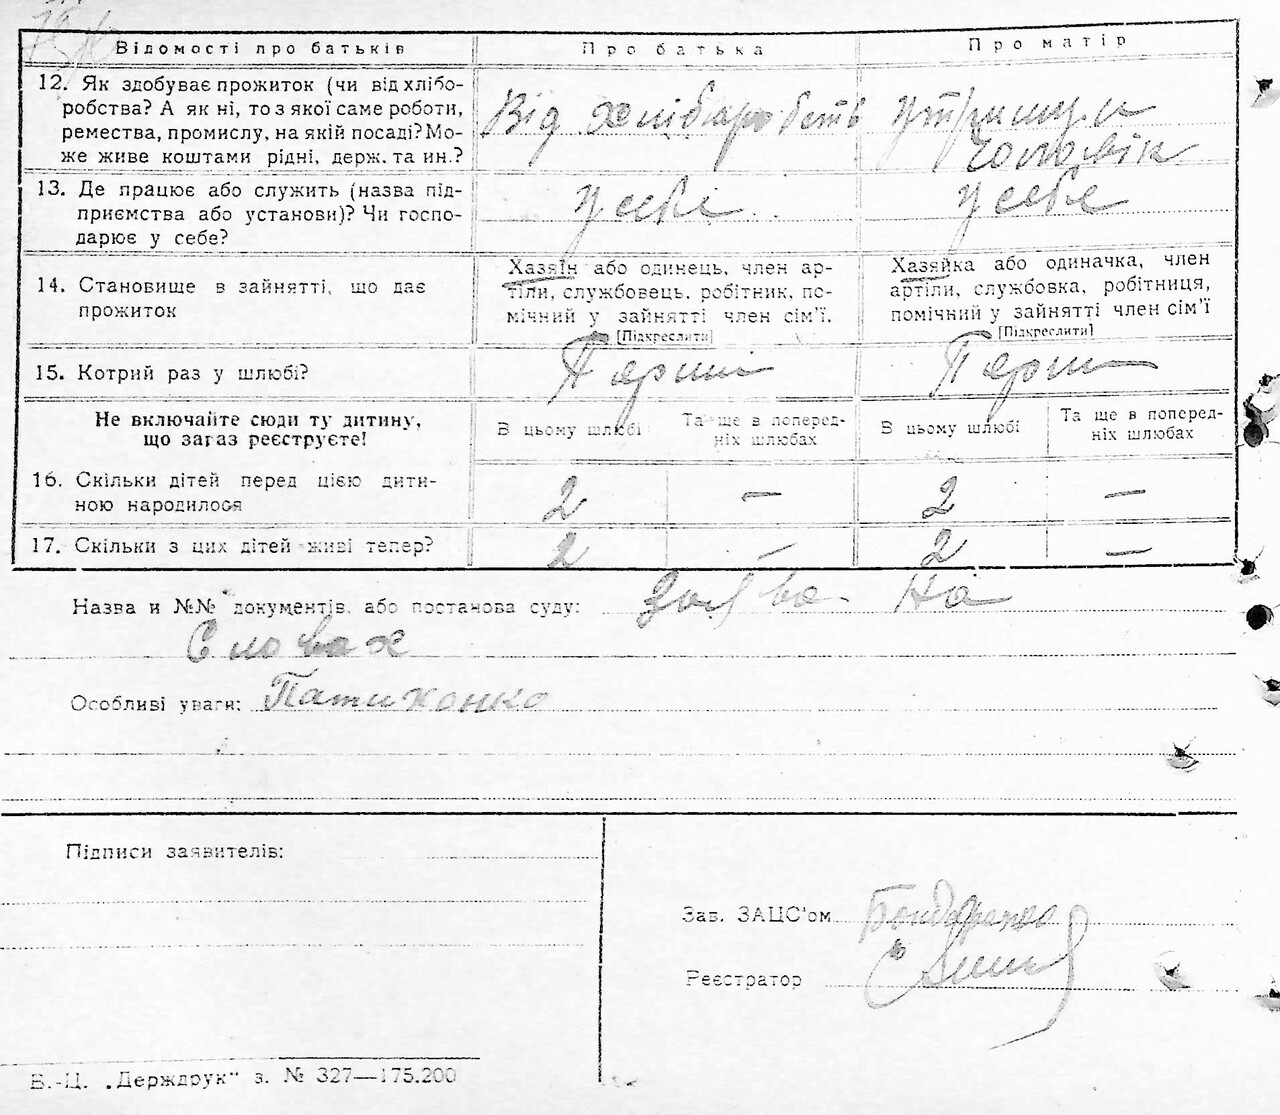 Відомості про батьків
Про батька
Про матір
12. Як здобуває прожиток (чи від хлібо-
робства? А як ні, то з якої саме роботи,
ремества, промислу, на якій посаді? Мо-
же живе коштами рідні, держ. та ин.?
Від хлібаробств
утримує
чоловік
13. Де працює або служить (назва під-
приємства або установи)? Чи госпо-
дарює у себе?
у себе
у себе
14. Становище в зайнятті, що дає
прожиток
Хазяїн або одинець, член ар-
тіли, службовець, робітник, по-
мічний у зайнятті член сім'ї.
[Підкреслити]
Хазяйка або одиначка, член
артіли, службовка, робітниця,
помічний у зайнятті член сім'ї
[Підкреслити]
15. Котрий раз у шлюбі?
Перший
Перш
Не включайте сюди ту дитину,
що зараз реєструєте!
В цьому шлюбі
Та ще в поперед-
ніх шлюбах
В цьому шлюбі
Та ще в поперед-
ніх шлюбах
16. Скільки дітей перед цією дити-
ною народилося
2 — 2 —
17. Скільки з цих дітей живі тепер?
2 — 2 —
Назва и №№ документів або постанова суду: Заява На
Словах
Особливі уваги:
Підписи заявителів:
Зав. ЗАЦС'ом Бондаренко
Реєстратор
В.-Ц. „Держдрук" з. № 327—175.200